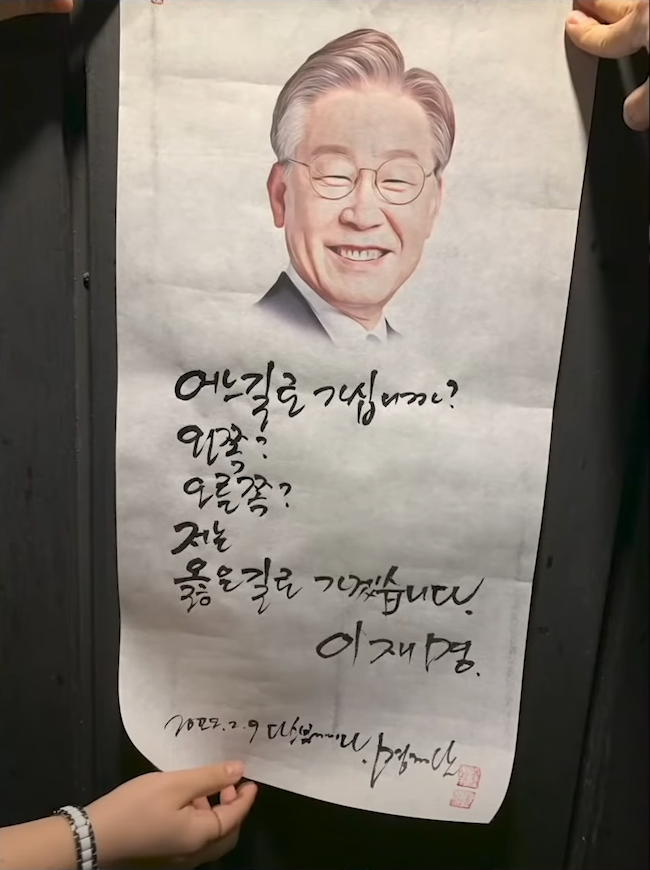 어느길로 가십니까?
왼쪽?
오른쪽?
저는
옳은길로 가겠습니다.
이재명.
2022.2.9